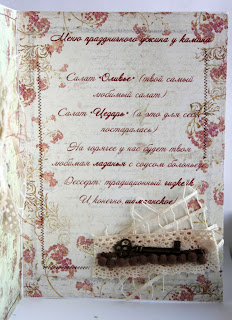 Меню праздничного ужина у камина
Салат "Оливье" (твой самый
любимый салат)
Салат "Цезарь" (а это для себя
постаралась)
На горячее у нас будет твоя
любимая лазанья с соусом болоньез
Дессерт: традиционный
И конечно, шампанское!